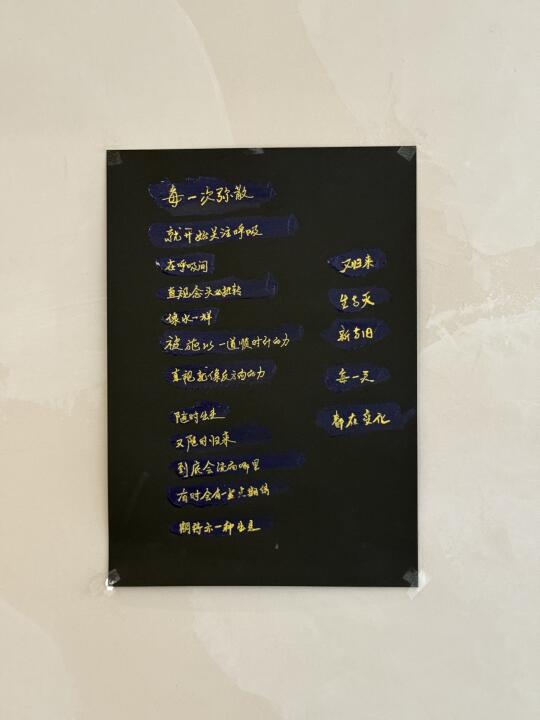 每一次弥散
就开始关注呼吸
在呼吸间
直视念头的扭转
像水一样
被施以一道顺时针的力
直视就像反方向的力
随时出走
又随时归来
到底会流向哪里
有时会有一些点期待
期待亦一种出走
又归来
生与灭
新与旧
每一天
都在变化